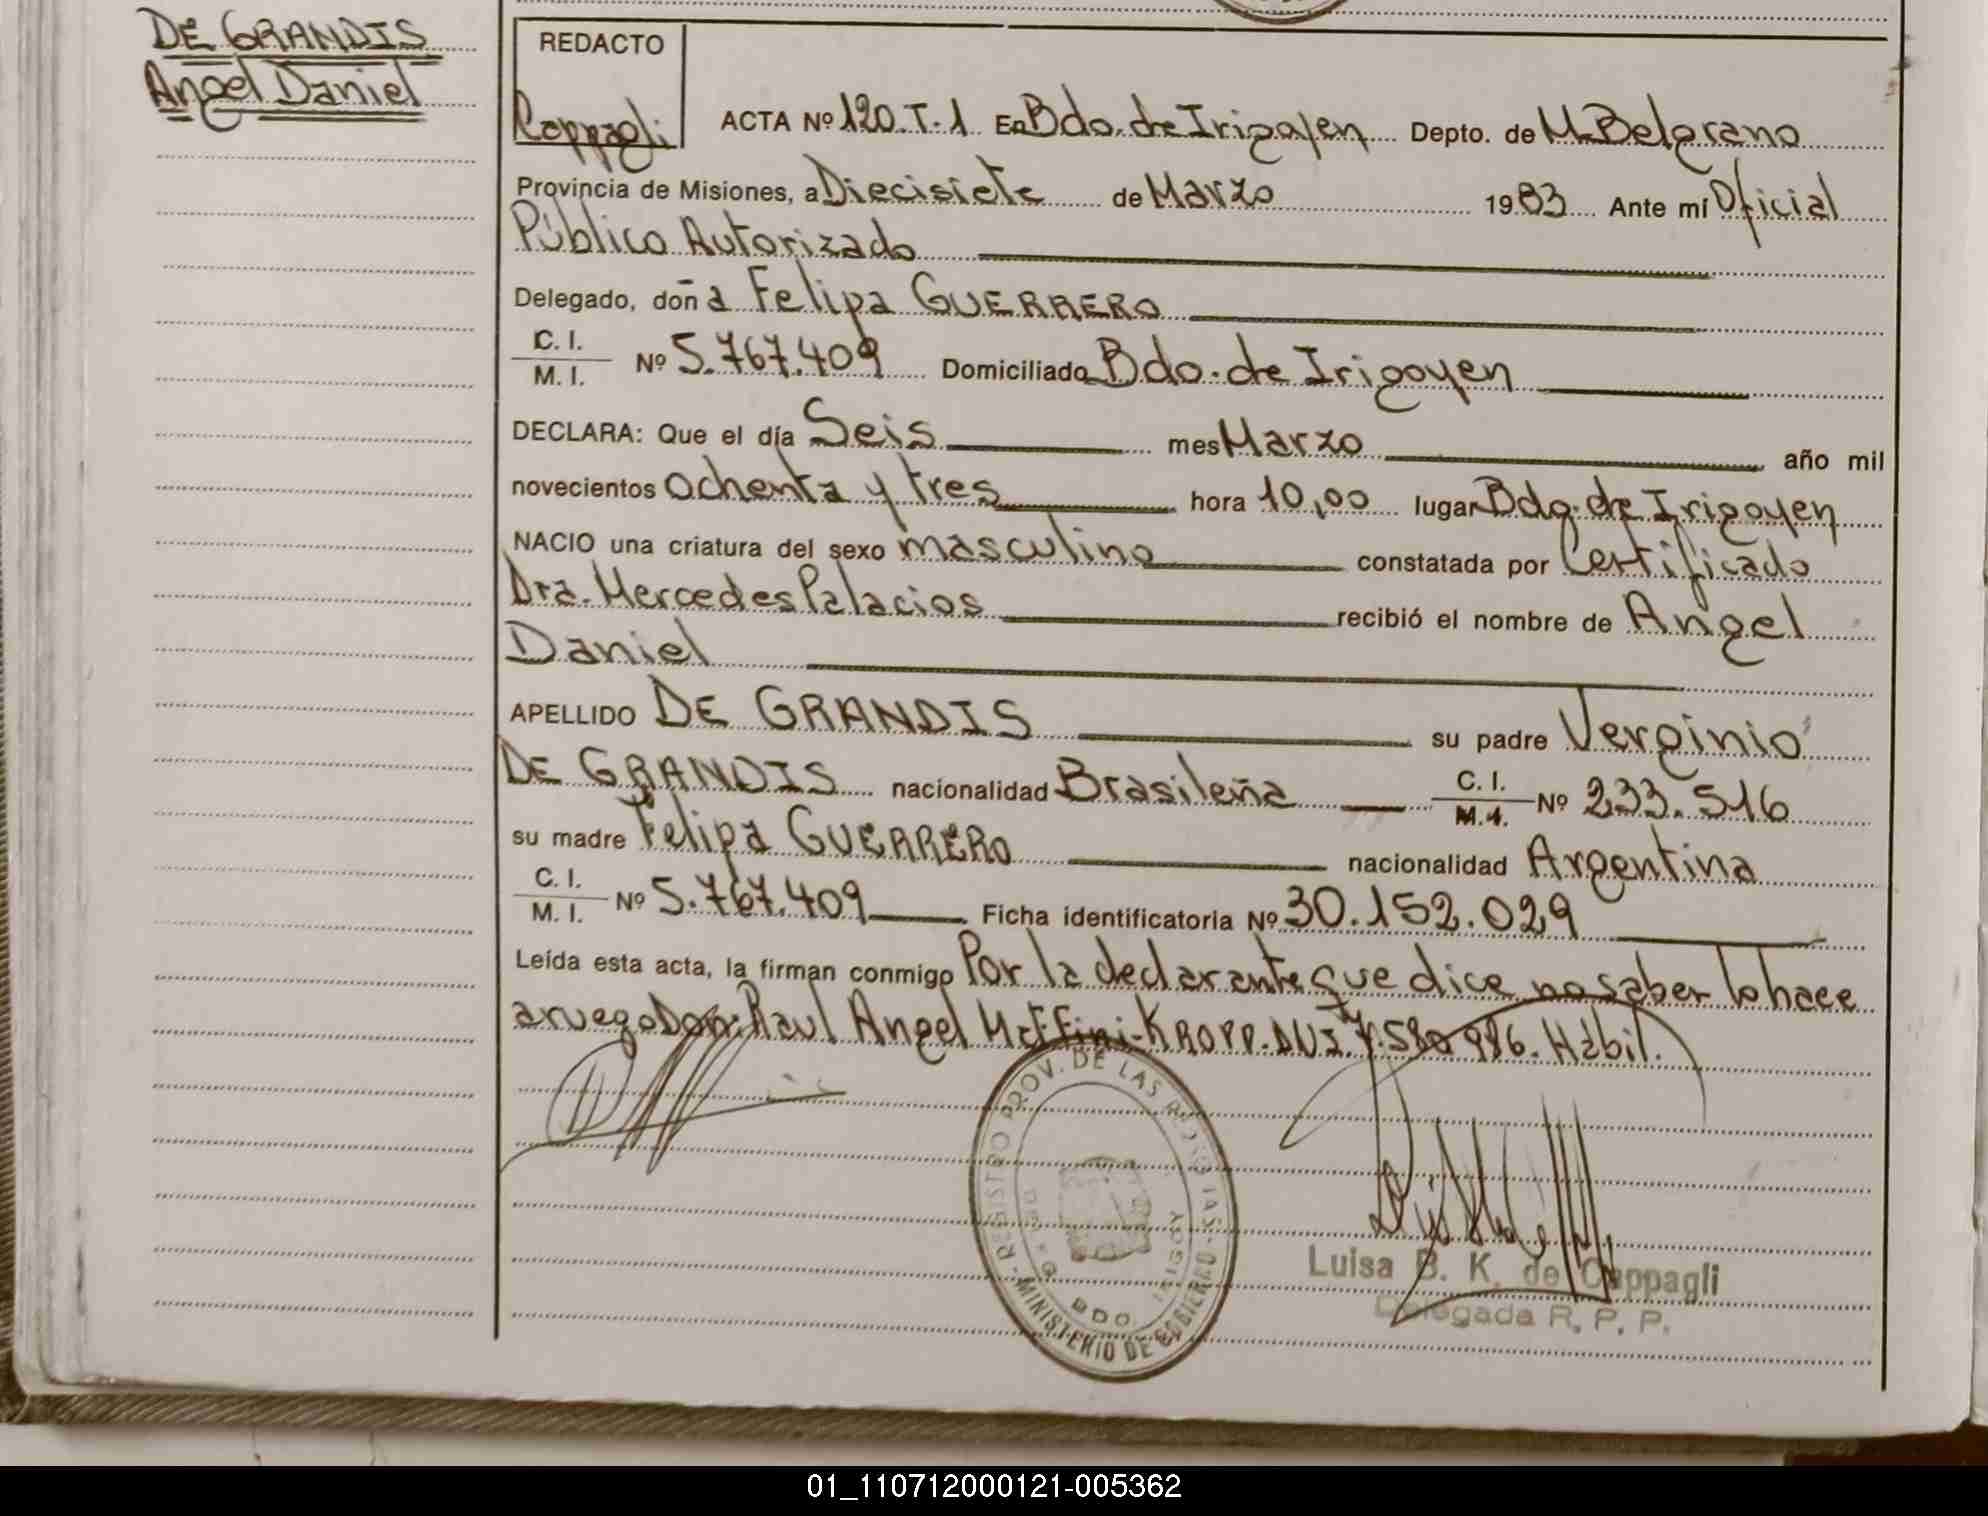 DE GRANDIS
Angel Daniel
REDACTO
Cappagli
ACTA Nº 120.T.1 En Bdo. de Irigoyen Depto. de M. Belgrano
Provincia de Misiones, a Diecisiete de Marzo 1983 Ante mí Oficial
Público Autorizado
Delegado, doña Felipa GUERRERO
C. I.
M. I. Nº 5.767.409 Domiciliado Bdo. de Irigoyen
DECLARA: Que el día Seis mes Marzo año mil
novecientos ochenta y tres hora 10,00 lugar Bdo. de Irigoyen
NACIO una criatura del sexo masculino constatada por Certificado
Dra. Mercedes Palacios recibió el nombre de Angel
Daniel
APELLIDO DE GRANDIS su padre Verginio
DE GRANDIS nacionalidad Brasileña C. I. M. I. Nº 233.516
su madre Felipa GUERRERO nacionalidad Argentina
C. I.
M. I. Nº 5.767.409 Ficha identificatoria Nº 30.152.029
Leída esta acta, la firman conmigo Por la declarante que dice no saber lo hace
a ruego Don: Raul Angel Maffini-KROPP. DNI. 7.580 986. Hábil.
REGISTRO PROV. DE LAS PERSONAS
MINISTERIO DE GOBIERNO
BDO. IRIGOY
Luisa B. K. de Cappagli
Delegada R. P. P.
01_110712000121-005362